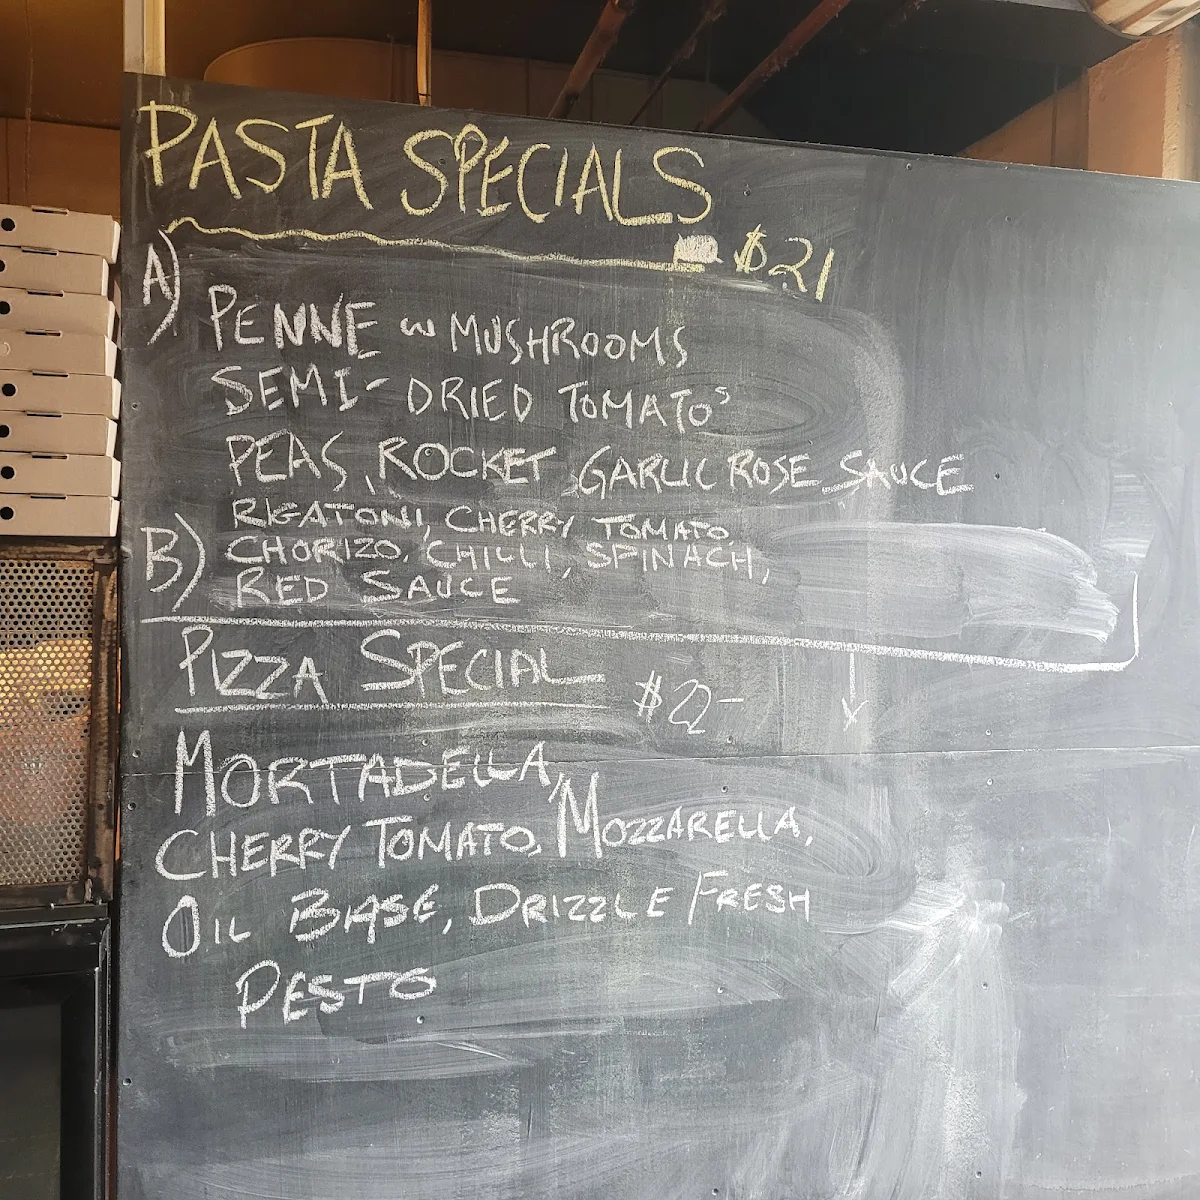 PASTA SPECIALS
$21
A)
PENNE w MUSHROOMS
SEMI-DRIED TOMATOS
PEAS, ROCKET, GARLIC ROSE SAUCE
B)
RIGATONI, CHERRY TOMATO,
CHORIZO, CHILLI, SPINACH,
RED SAUCE
PIZZA SPECIAL
$22-
MORTADELLA,
CHERRY TOMATO, MOZZARELLA,
OIL BASE, DRIZZLE FRESH
PESTO